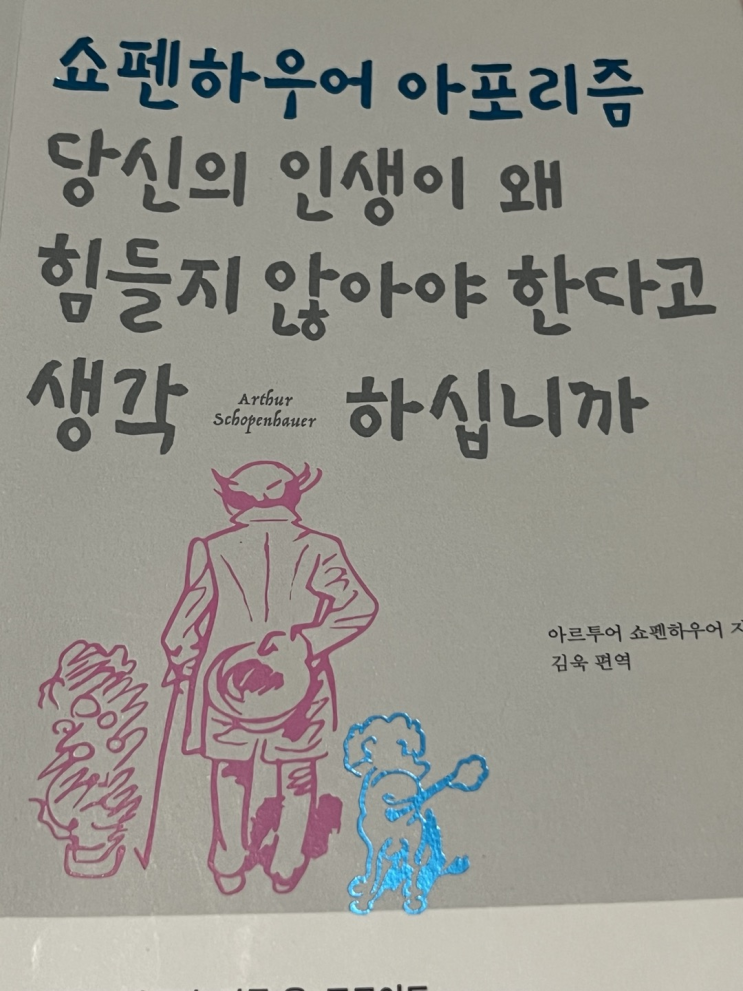 쇼펜하우어 아포리즘
당신의 인생이 왜
힘들지 않아야 한다고
생각 하십니까
Arthur
Schopenhauer
아르투어 쇼펜하우어
김욱 편역